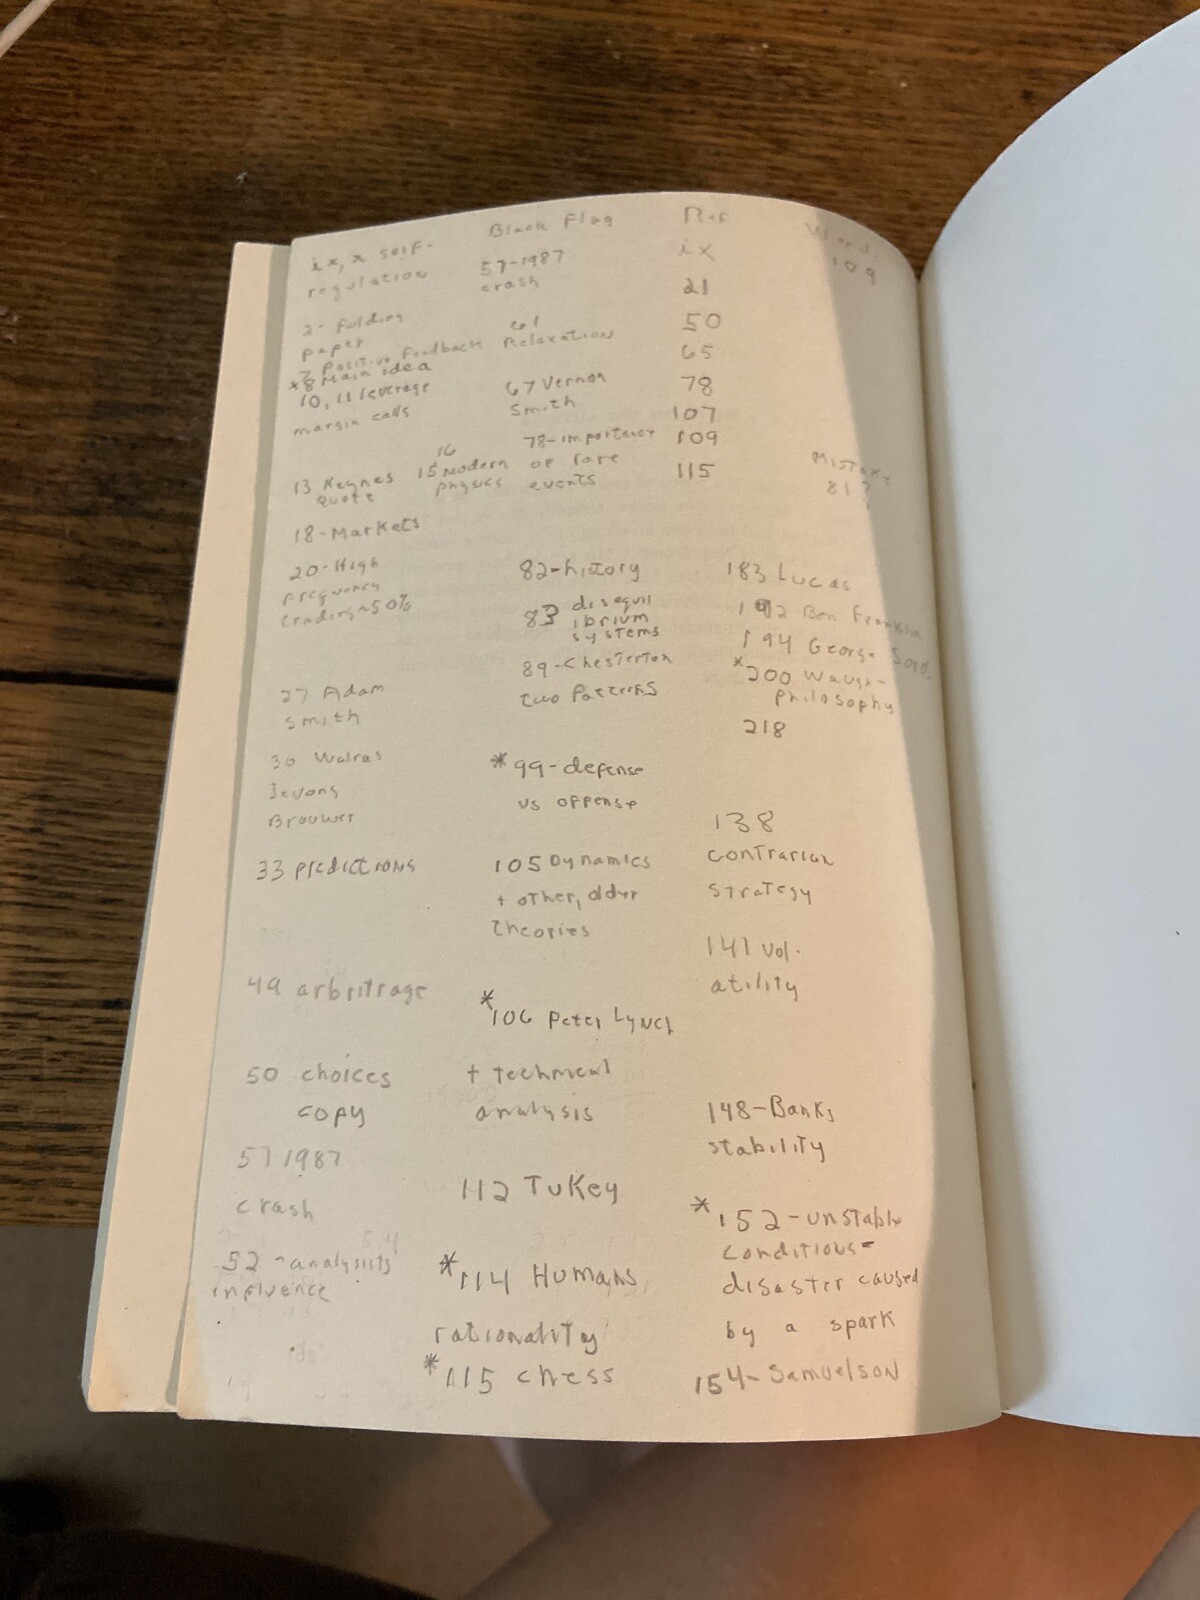 ix, x self-
regulation
2- Folding
paper
7 Positive Feedback
*8 Main idea
10, 11 leverage
margin calls
13 Keynes
quote
16
15 Modern
physics
18-Markets
20-High
frequency
trading~50%
27 Adam
Smith
30 Walras
Jevons
Brouwer
33 predictions
49 arbritrage
50 choices
copy
57 1987
crash
52-analysists'
influence
Black Flag
57-1987
crash
61
Relaxation
67 Vernon
Smith
78-importance
of rare
events
82-history
83 disequil
ibrium
systems
89-Chesterton
two Patterns
*99-defense
vs offense
105 Dynamics
+ other, older
theories
*106 Peter Lynch
+ technical
analysis
112 Tukey
*114 Humans
rationality
*115 chess
Ref
ix
21
50
65
78
107
109
115
Words
109
Mistake
81?
183 Lucas
192 Ben Franklin
194 George
*200 Waugh-
philosophy
218
138
contrarian
strategy
141 vol-
atility
148-Banks
stability
*152-unstable
conditions-
disaster caused
by a spark
154-Samuelson